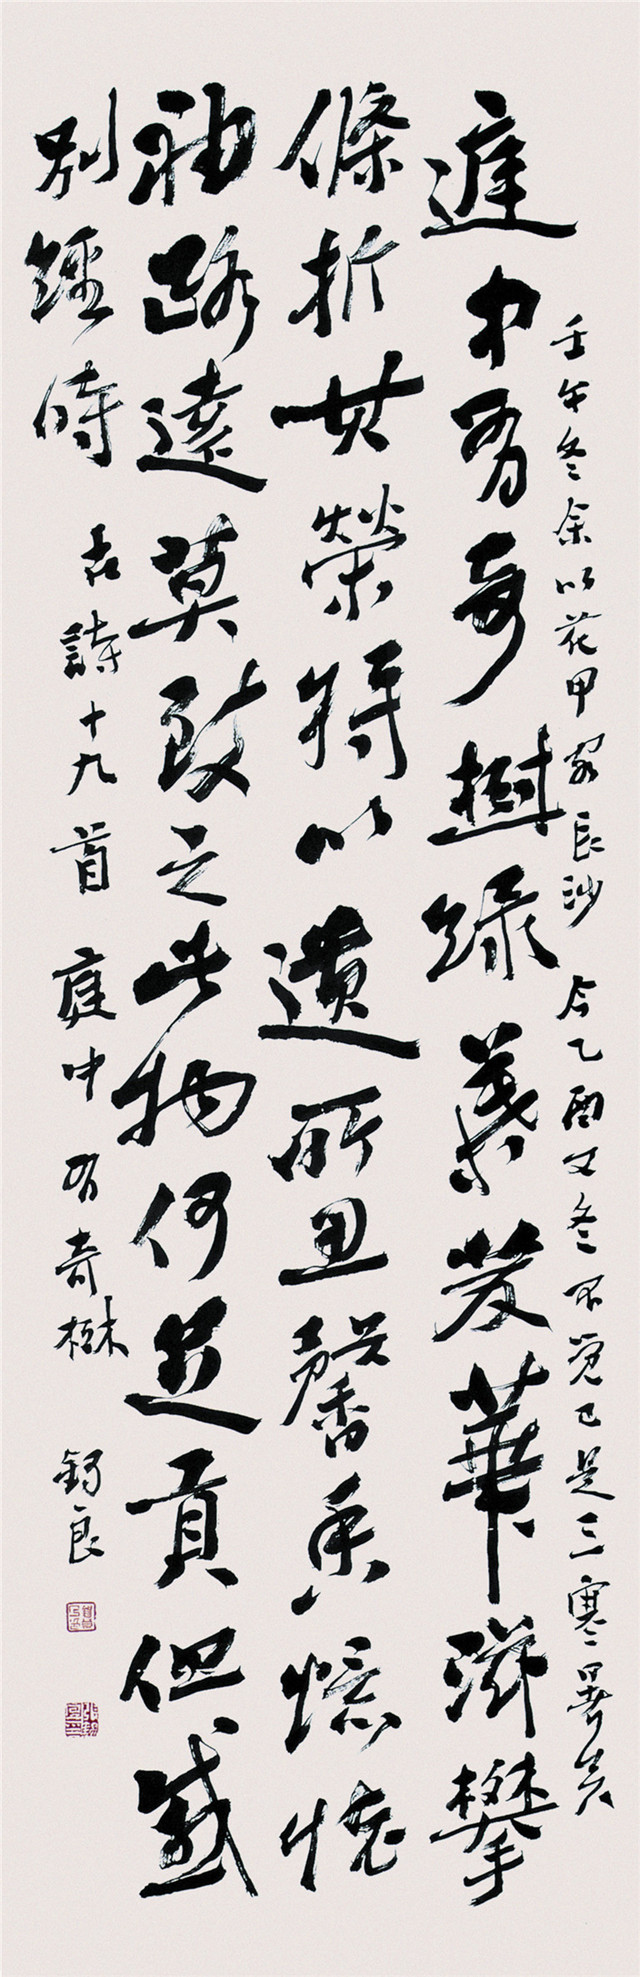 壬午冬余以花甲客長沙 今乙酉又冬不覺已是三寒暑矣
庭中有奇樹綠葉發華滋攀
條折其榮將以遺所思馨香憶懷
袖路遠莫致之此物何足貢但感
別經時
古詩十九首 庭中有奇樹 錫良